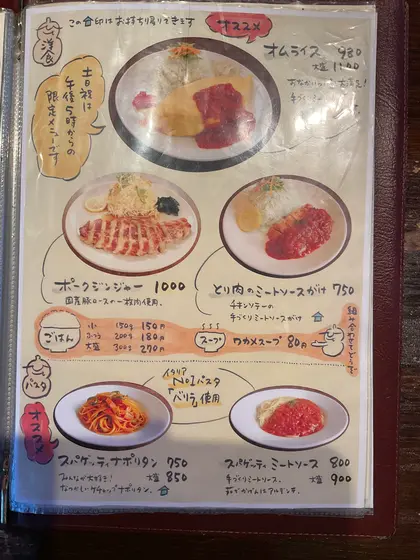 この 印はお持ち帰りできます
洋食
オススメ
オムライス 980
大盛 1200
土日祝は
午後一時からの
限定メニューです
ポークジンジャー 1000
国産豚ロースの一枚肉使用。
とり肉のミートソースがけ 750
チキンソテーの
手づくりミートソースがけ
ごはん
小 150g 150円
ふつう 200g 180円
大盛 300g 270円
スープ
ワカメスープ 80円
組み合わせてどうぞ
パスタ
オススメ
イタリア
No1パスタ
「バリラ」使用
スパゲッティナポリタン 750
みんなが大好き! 大盛 850
なつかしいケチャップナポリタン。
スパゲッティミートソース 800
手づくりミートソース。 大盛 900
茹でかげんはアルデンテ。